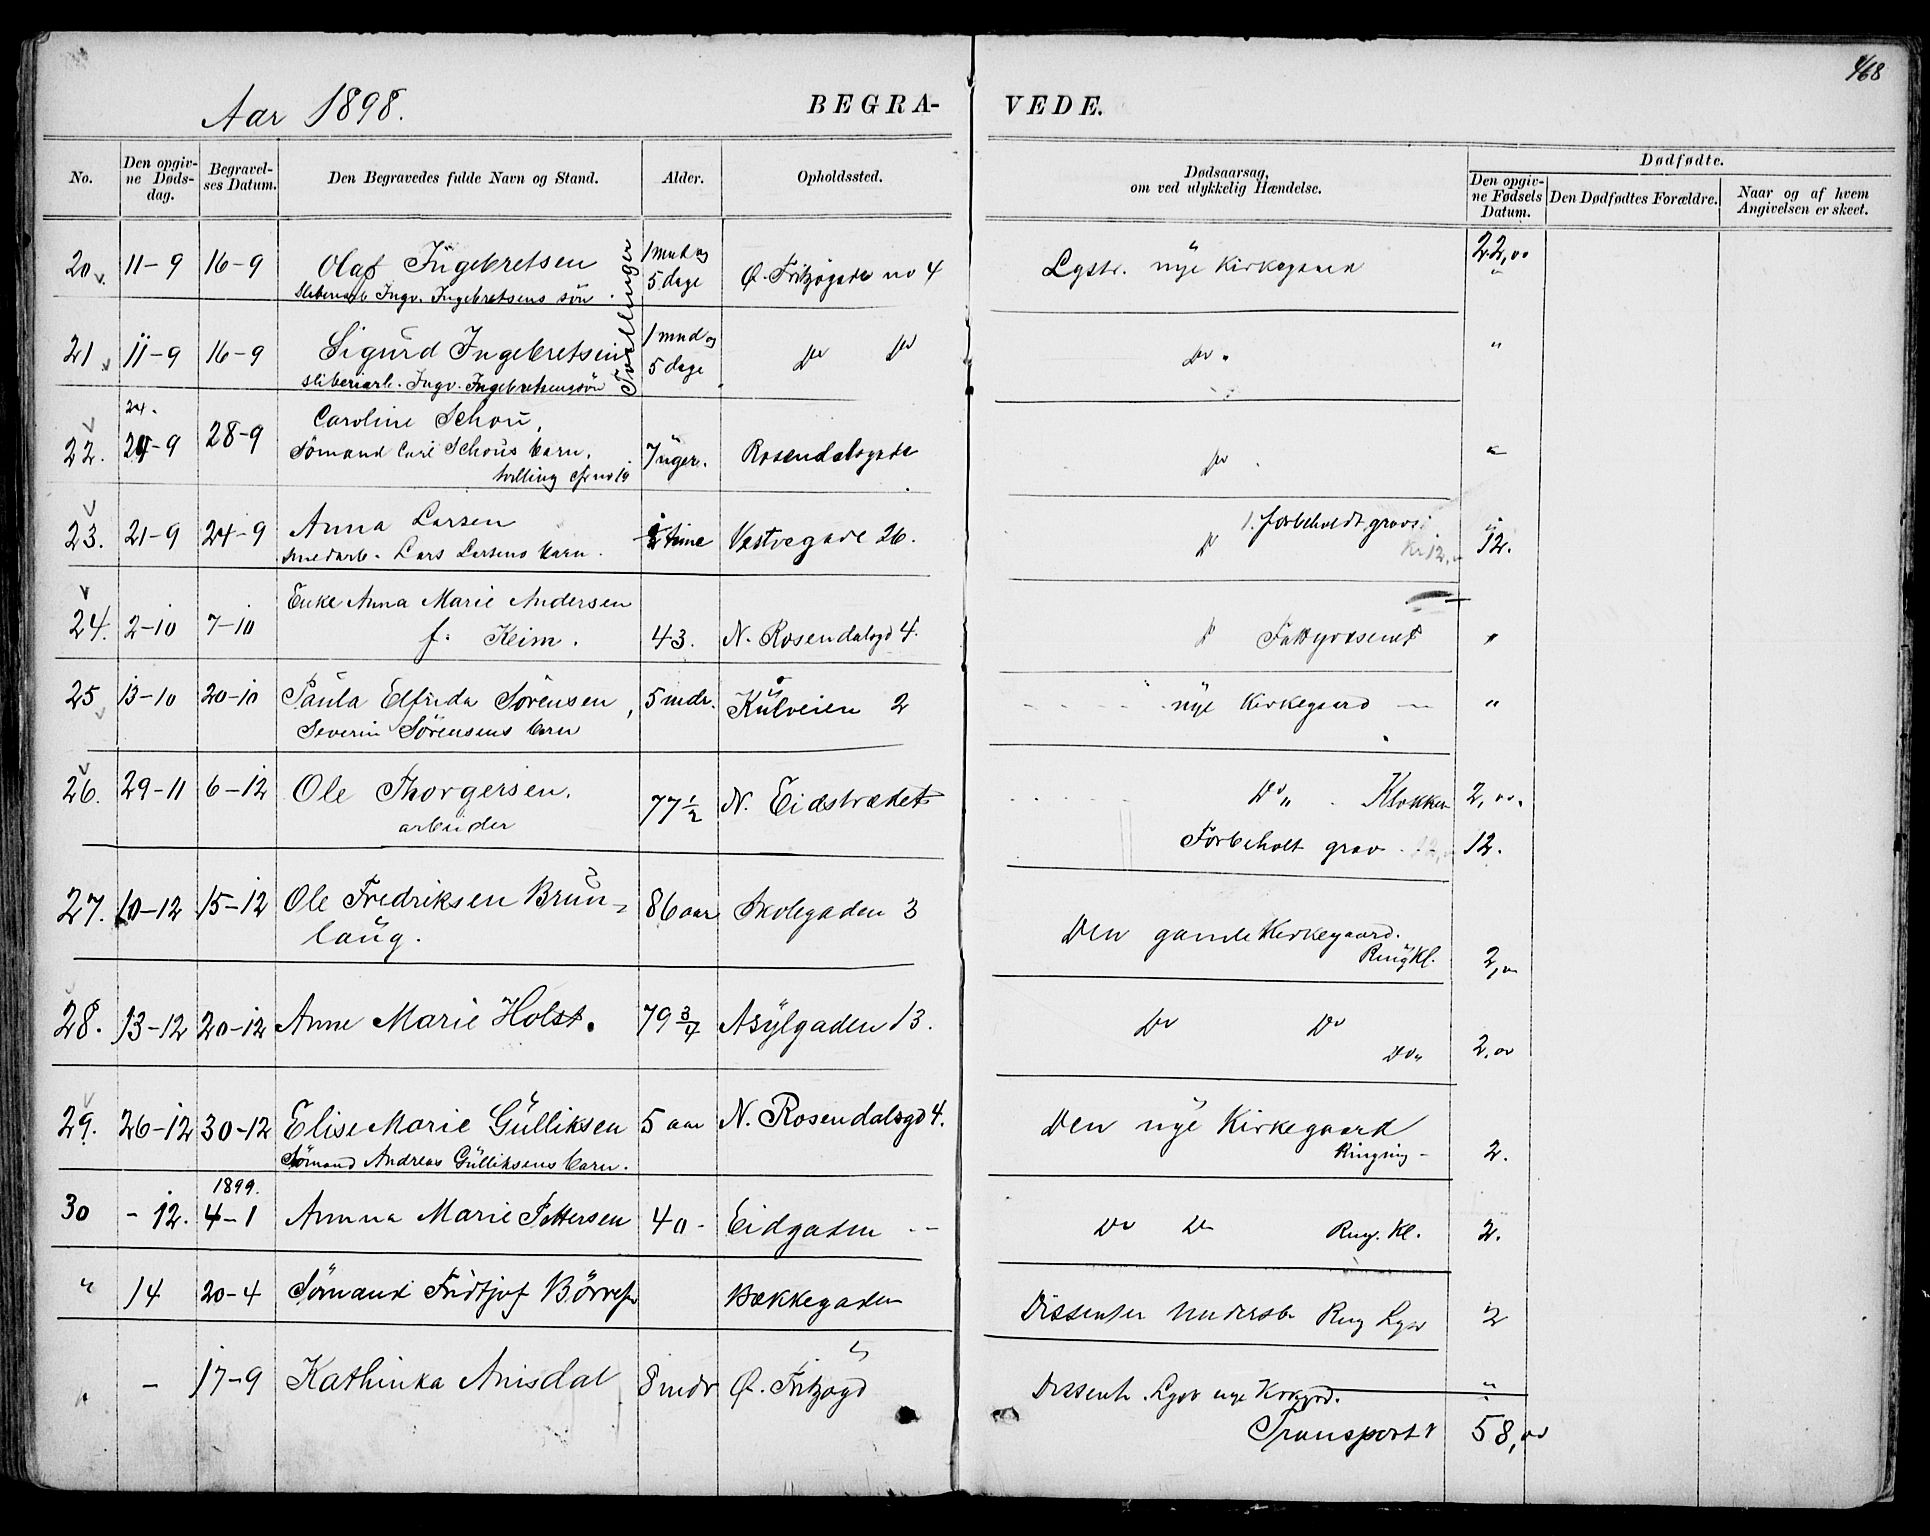 468
Aar 1898.
BEGRA-
VEDE.
No.
Den opgiv-
ne Døds-
dag.
Begravel-
ses Datum.
Den Begravedes fulde Navn og Stand.
Alder.
Opholdssted.
Dødsaarsag,
om ved ulykkelig Hændelse.
Dødfødte.
Den opgiv-
ne Fødsels
Datum.
Den Dødfødtes Forældre.
Naar og af hvem
Angivelsen er skeet.
20 11-9 16-9 Olaf Ingebretsen 1 mnd og Ø. Fritzøgade no 4 Lgstr. nye Kirkegaard 22,00
Sliberiarb Ingv. Ingebretsens søn. 5 dage "
Tvillinger
21 11-9 16-9 Sigurd Ingebretsen 1 mnd og Do Do Do. "
Sliberiarb. Ingv. Ingebretsens søn 5 dage
24.
22. 24-9 28-9 Caroline Schou, 7 uger. Rosendalsgade Do "
Sømand Carl Schous barn.
tvilling cfr no 19
23. 21-9 24-9 Anna Larsen ½ time Vestregade 26. D 1. forbeholdt gravs: 12.
Smedarb. Lars Larsens barn. Kr 12,
24. 2-10 7-10 Enke Anna Marie Andersen
f. Keim. 43. N. Rosendalsgd 4. D Fattigvæsenet "
25 13-10 20-10 Paula Elfrida Sørensen, 5 mdr. Kulveien 2 nye Kirkegaard "
Severin Sørensens barn
26. 29-11 6-12 Ole Thorgersen. 77 ½ N. Eidstrædet Do " Klokken 2,00.
arbeider Forbeholt grav 12.
27. 10-12 15-12 Ole Fredriksen Brun- 86 aar Skolegaden 3 Den gamle Kirkegaard.
laug. Ring Kl. 2,00
28. 13-12 20-12 Anne Marie Holst. 79 3/4 Asylgaden 13. Do Do
Do " 2,00
29. 26-12 30-12 Elise Marie Gulliksen 5 aar N. Rosendalsgd 4. Den nye Kirkegaard
Sømand Andreas Gulliksens barn. Ringning - 2.
1899.
30 - 12. 4-1 Amna Marie Pettersen 40 - Eidgaden -- Do Do Ring. Kl. 2.
" 14 20-4 Sømand Fridtjof Børresen Bækkegaden Dissenter Undersb. Ring 2
- 17-9 Kathinka Anisdal 8 mdr Ø. Fritzøgd Dissent. nye Kirkgrd. "
Transport 58,00